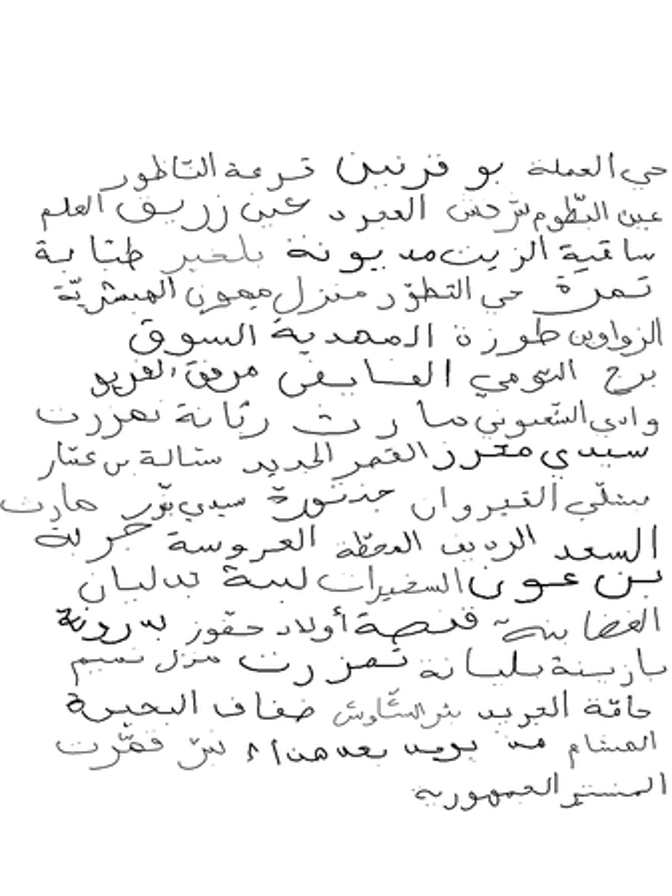 حي العملة بو فرنين ترعة الناظور
عين البطوم شرحش العبرد عين زريف العلم
ساقية الزيت مديونة بلخير طبابة
تمرة حي التطوّر منزل ميمون المبشريّة
الزواوين طوزة المهدية السوق
برج التومي الفايض مرفق الفريو
وادي الشعبوني مارث رتّانة تمزرت
سيدي محرز القصر الجديد ستالة بن عمّار
سبتلّي القيروان جندورة سيدي بوّر مارث
السعد الرديف المحطّة العروسة جربة
بن عون السفيرات لبنة بدلبان
الغضابنة قفصة أولاد حفوز
بازينة بليانة تمزرت منزل نسيم
حامّة الجريد بئر الشّاوش ضفاف البحيرة
الهشام قمّرت
المنستير الجمهورية